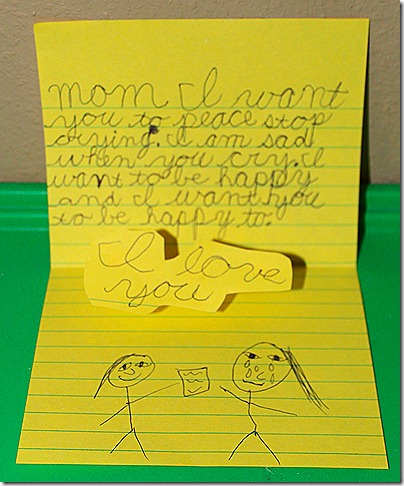 mom I want
you to peace stop
crying. I am sad
when you cry. I
want to be happy
and I want you
to be happy to.
I love
you